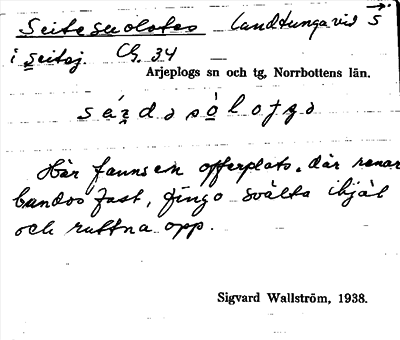 Seitesuolotes landtunga vid S
i seitaj. Ch. 34
Arjeplogs sn och tg, Norrbottens län.
Här fanns en offerplats, där renar
bundos fast, fingo svälta ihjäl
och ruttna opp.
Sigvard Wallström, 1938.